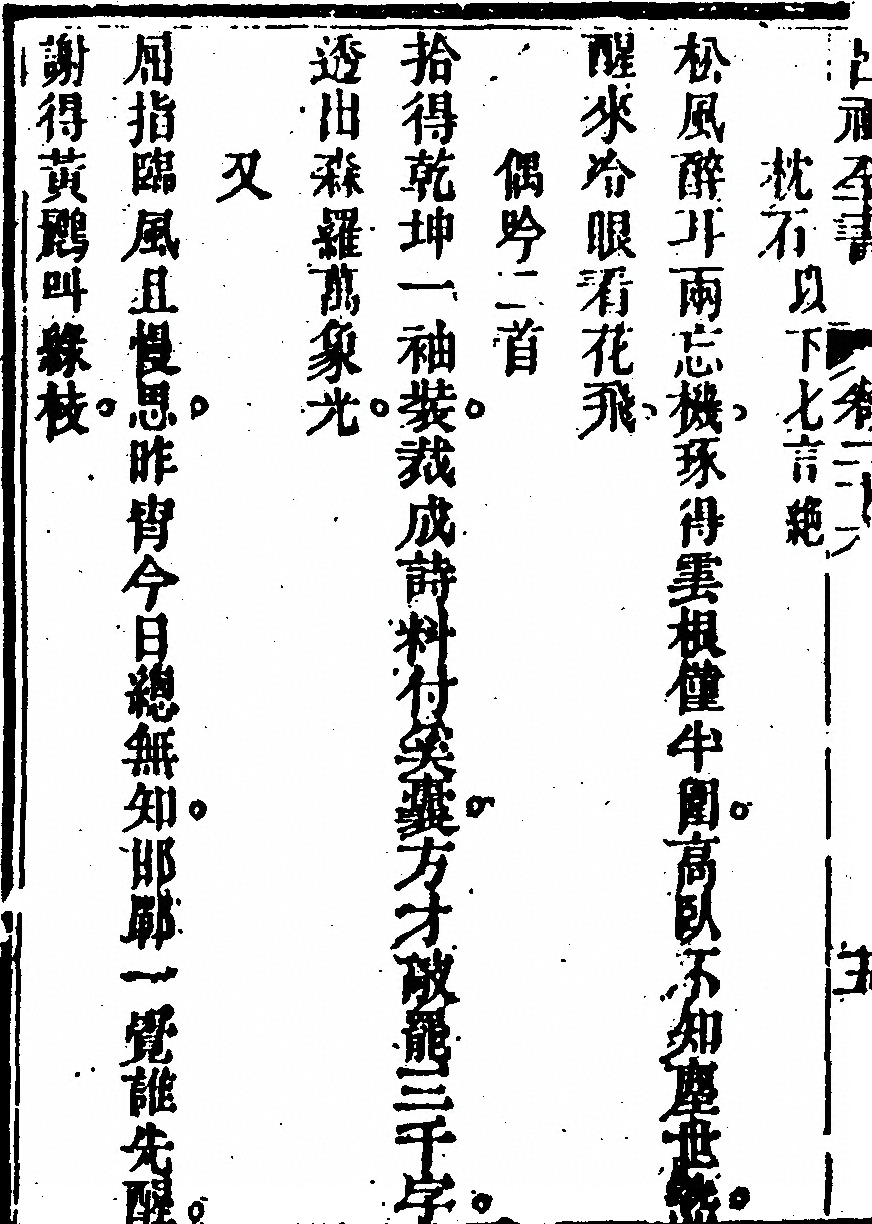 枕石 以下七言絕
松風醉耳兩忘機琢得雲根僅半圍。高臥不知塵世
醒來冷眼看花飛
偶吟二首
拾得乾坤一袖裝。裁成詩料付奚囊。方才敲罷三千字。
透出森羅萬象光。
又
屈指臨風且慢思。昨宵今日總無知。邯鄲一覺誰先醒。
謝得黃鸝叫綠枝。